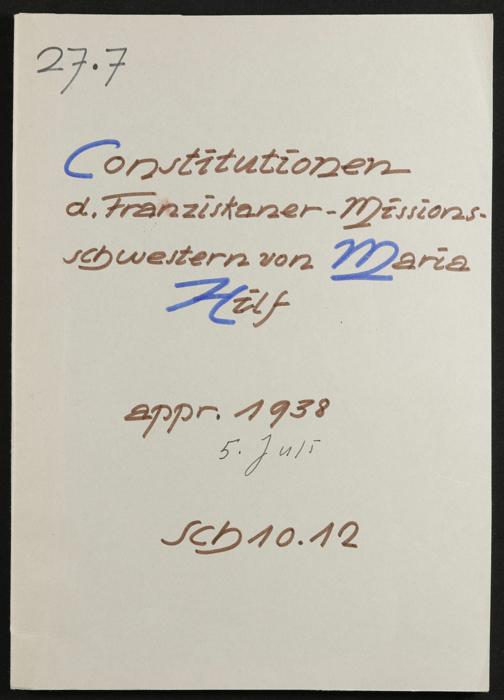 27.7
Constitutionen
d. Franziskaner-Missions-
schwestern von Maria
Hilf
appr. 1938
5. Juli
Sch 10.12